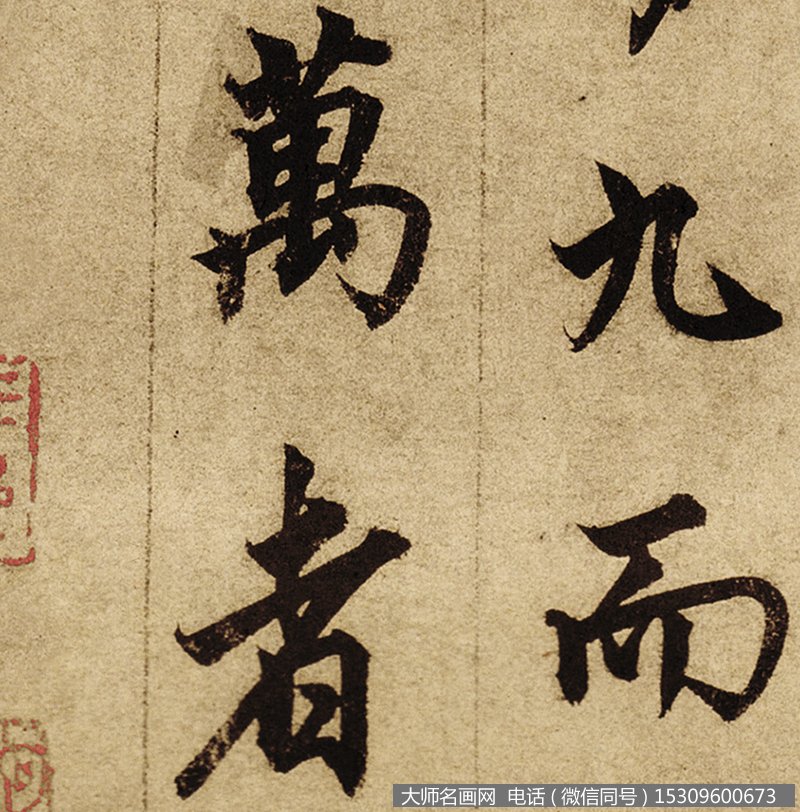 九而
萬者
大师名画网 电话（微信同号）15309600673